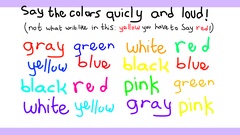 Say the colors quicly and loud!
(not what writike in this. yellow you have to Say red!)
gray green white red
yellow blue black blue
black red pink green
white yellow gray pink